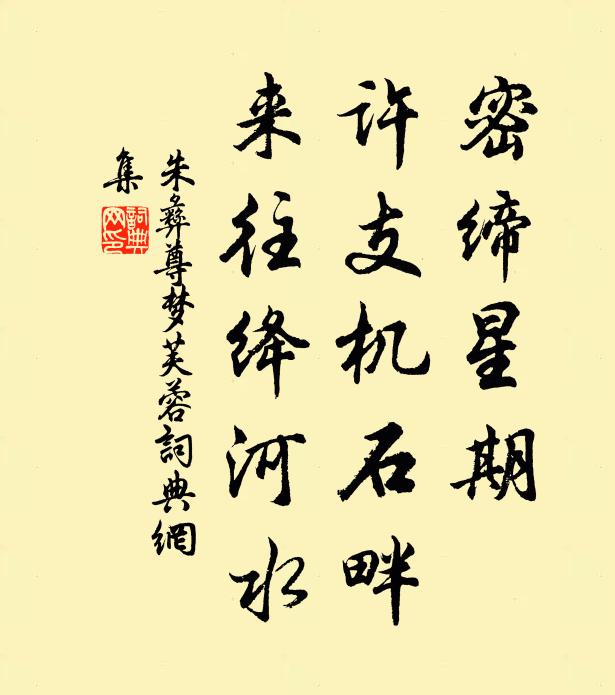 密缔星期
许支机石畔
来往绛河水
朱彝尊梦芙蓉詞典網
集
詞典
网印